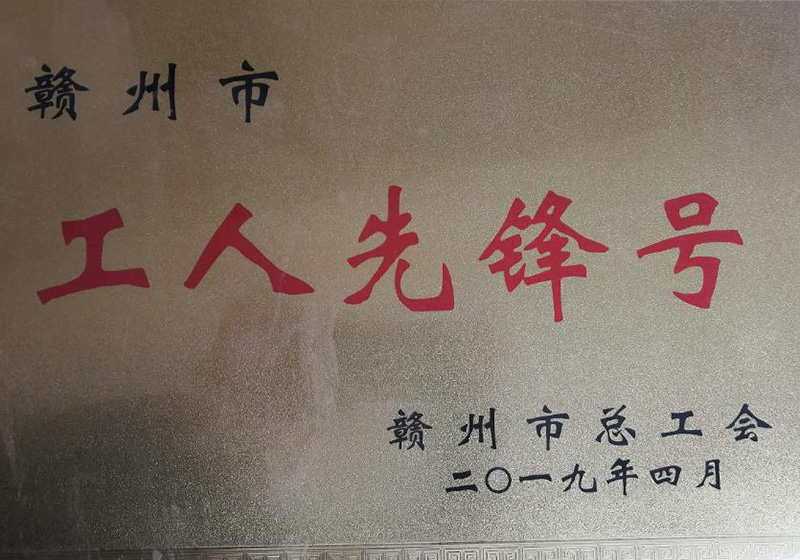 赣州市
工人先锋号
赣州市总工会
二〇一九年四月